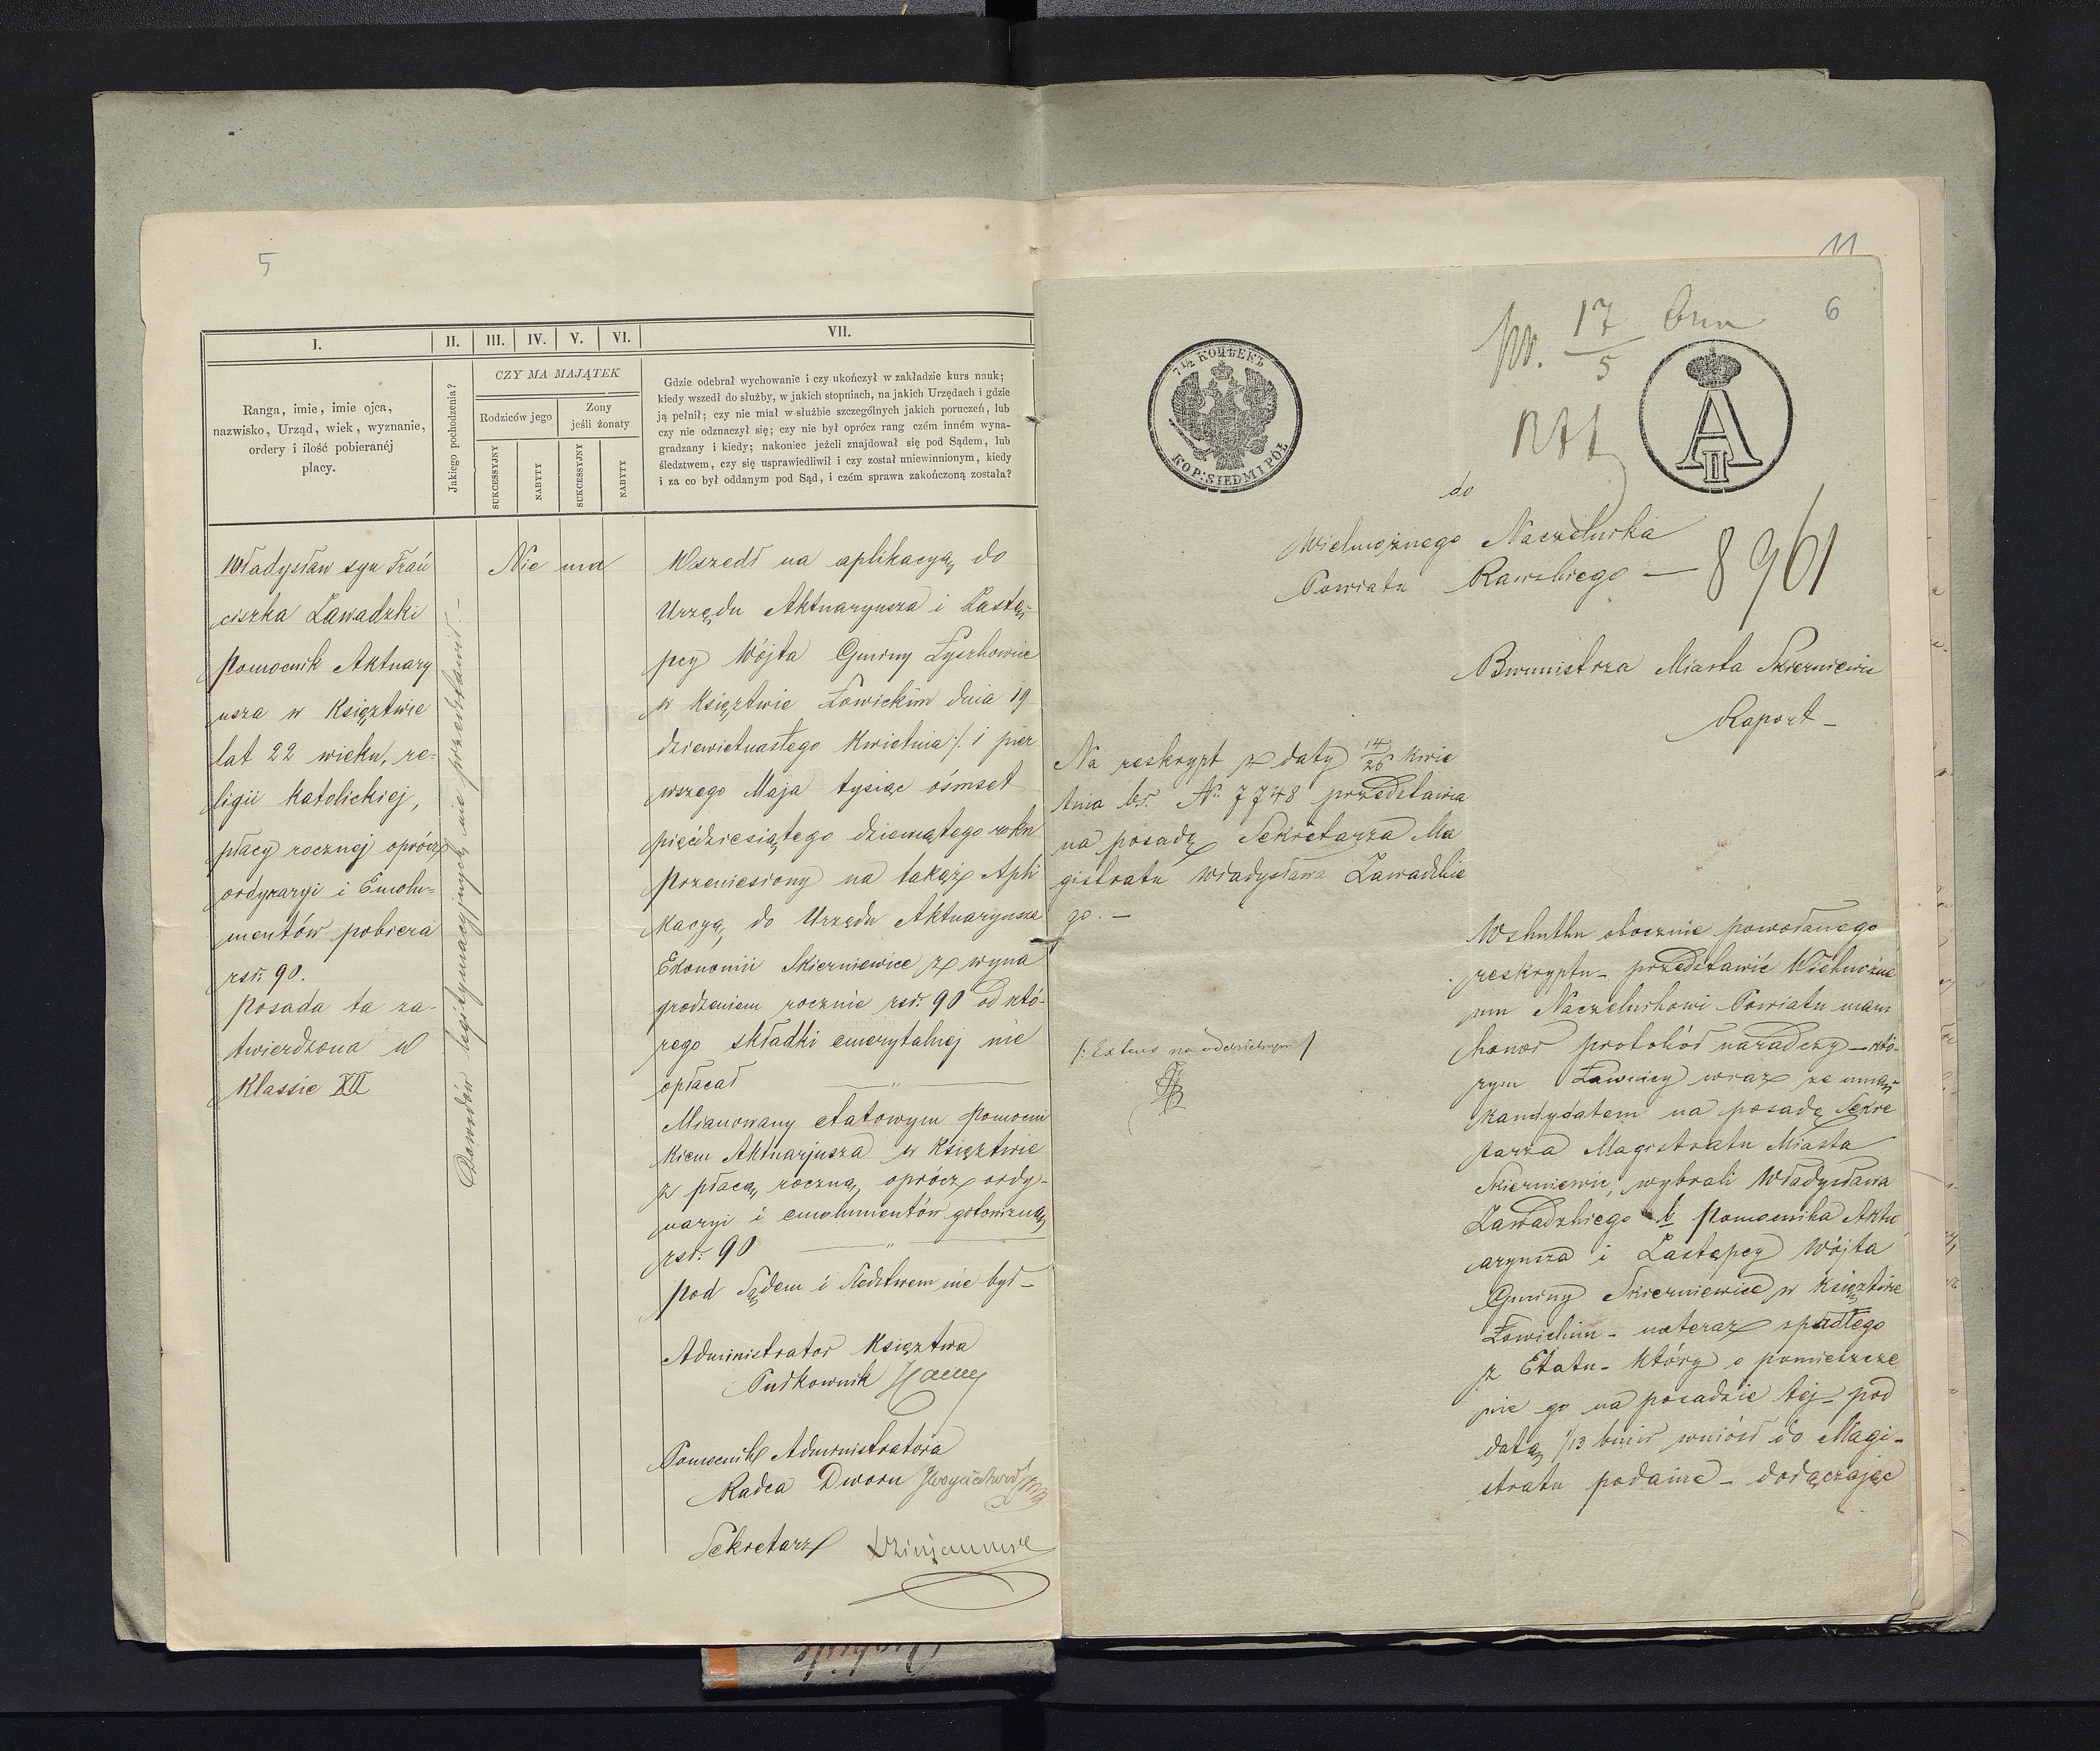 5
I.
II.
III.
IV.
V.
VI.
VII.
Ranga, imie, imie ojca,
nazwisko, Urząd, wiek, wyznanie,
ordery i ilość pobieranéj
płacy.
Jakiego pochodzenia?
CZY MA MAJĄTEK
Rodziców jego
Zony
jeśli żonaty
SUKCESSYJNY
NABYTY
SUKCESSYJNY
NABYTY
Gdzie odebrał wychowanie i czy ukończył w zakładzie kurs nauk;
kiedy wszedł do służby, w jakich stopniach, na jakich Urzędach i gdzie
ją pełnił; czy nie miał w służbie szczególnych jakich poruczeń, lub
czy nie odznaczył się; czy nie był oprócz rang czém inném wyna-
gradzany i kiedy; nakoniec jeżeli znajdował się pod Sądem, lub
śledztwem, czy się usprawiedliwił i czy został uniewinnionym, kiedy
i za co był oddanym pod Sąd, i czém sprawa zakończoną została?
Władysław syn Frań
ciszka Zawadzki
Pomocnik Aktuary
usza w Księztwie
lat 22 wieku, re=
ligii Katolickiej,
płacy rocznej oprócz
ordynaryi i Emolu=
mentów pobiera
rsr. 90.
Posada ta za-
twierdzona w
Klassie XII
Dowodów legitymacyjnych nie przedstawił
Nie ma
Wszedł na aplikacyą do
Urzędu Aktuaryusza i Zastę-
pcy Wójta Gminy Łyszkowice
w Księztwie Łowickim dnia 19
dziewietnastego Kwietnia /. i pier
wszego Maja tysiąc ośmset
pięćdziesiątego dziewiątego roku
Przeniesiony na takąż Apli
kacyą do Urzędu Aktuaryusza
Ekonomii Skierniewice z wyna
grodzeniem rocznie rsr. 90 od któ-
rego składki emerytalnej nie
opłacał
Mianowany etatowym Pomocni
kiem Aktuarjusza w Księztwie
z płacą roczną oprócz ordy-
naryi i emolumentów gotowizną
rsr. 90
Pod Sądem i Śledztwem nie był -
Administrator Księztwa
Pułkownik
Pomocnik Administratora
Radca Dworu
Sekretarz
11
6
17
5
7½ КОПѢЕКЪ
KOP: SIEDMI PÓŁ
A II
do
Wielmożnego Naczelnika
Powiatu Rawskiego —
8961
Burmistrza Miasta Skierniewic
Raport -
Na reskrypt z daty 14/26 Kwie
tnia br. No 7748 przedstawia
na posadę Sekretarza Ma
gistratu Władysława Zawadzkie
go. -
Wskutku obocznie powołanego
reskryptu - przedstawić Wielmożne
mu Naczelnikowi Powiatu mam
honor protokół naradczy - któ-
rym Ławnicy wraz ze mną
kandydatem na posadę Sekre
tarza Magistratu Miasta
Skierniewic, wybrali Władysława
Zawadzkiego b Pomocnika Aktu
aryusza i Zastępcy Wójta
Gminy Skierniewice w Księztwie
Łowickim - nateraz spadłego
z Etatu - który o pomieszcze
nie go na posadzie tej - pod
datą 1/13 bmir wniósł do Magi-
stratu podanie - dołączając